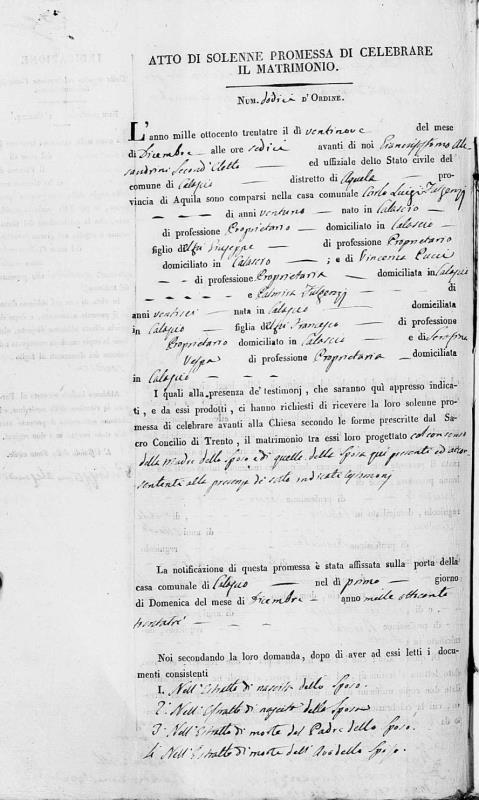 ATTO DI SOLENNE PROMESSA DI CELEBRARE
IL MATRIMONIO.
NUM. dodici D'ORDINE.
L'anno mille ottocento trentatre il dì ventinove del mese
di Dicembre alle ore sedici avanti di noi Ales-
sandrini Second'Eletto ed uffiziale dello Stato civile del
comune di Calascio distretto di Aquila pro-
vincia di Aquila sono comparsi nella casa comunale Carlo Luigi Fulgenzj
di anni ventuno nato in Calascio
di professione Proprietario domiciliato in Calascio
figlio del fu Giuseppe di professione Proprietario
domiciliato in Calascio ; e di Vincenza Pucci
di professione Proprietaria domiciliata in Calascio
e Palmira Fulgenzj di
anni ventisei nata in Calascio domiciliata
in Calascio figlia del fu Francesco di professione
Proprietario domiciliato in Calascio e di Serafina
Vespa di professione Proprietaria domiciliata
in Calascio
I quali alla presenza de' testimonj, che saranno quì appresso indica-
ti, e da essi prodotti, ci hanno richiesti di ricevere la loro solenne pro-
messa di celebrare avanti alla Chiesa secondo le forme prescritte dal Sa-
cro Concilio di Trento, il matrimonio tra essi loro progettato col consenso
della madre dello sposo, e di quella della sposa qui presenti ed accon-
sentente alla presenza di sotto indicati testimonj
La notificazione di questa promessa è stata affissata sulla porta della
casa comunale di Calascio nel dì primo giorno
di Domenica del mese di Dicembre anno mille ottocento
trentatrè
Noi secondando la loro domanda, dopo di aver ad essi letti i docu-
menti consistenti
1. Nell'Estratto di nascita dello Sposo.
2. Nell'Estratto di nascita della Sposa
3. Nell'Estratto di morte del Padre dello Sposo.
4. Nell'Estratto di morte dell'Avo dello Sposo.